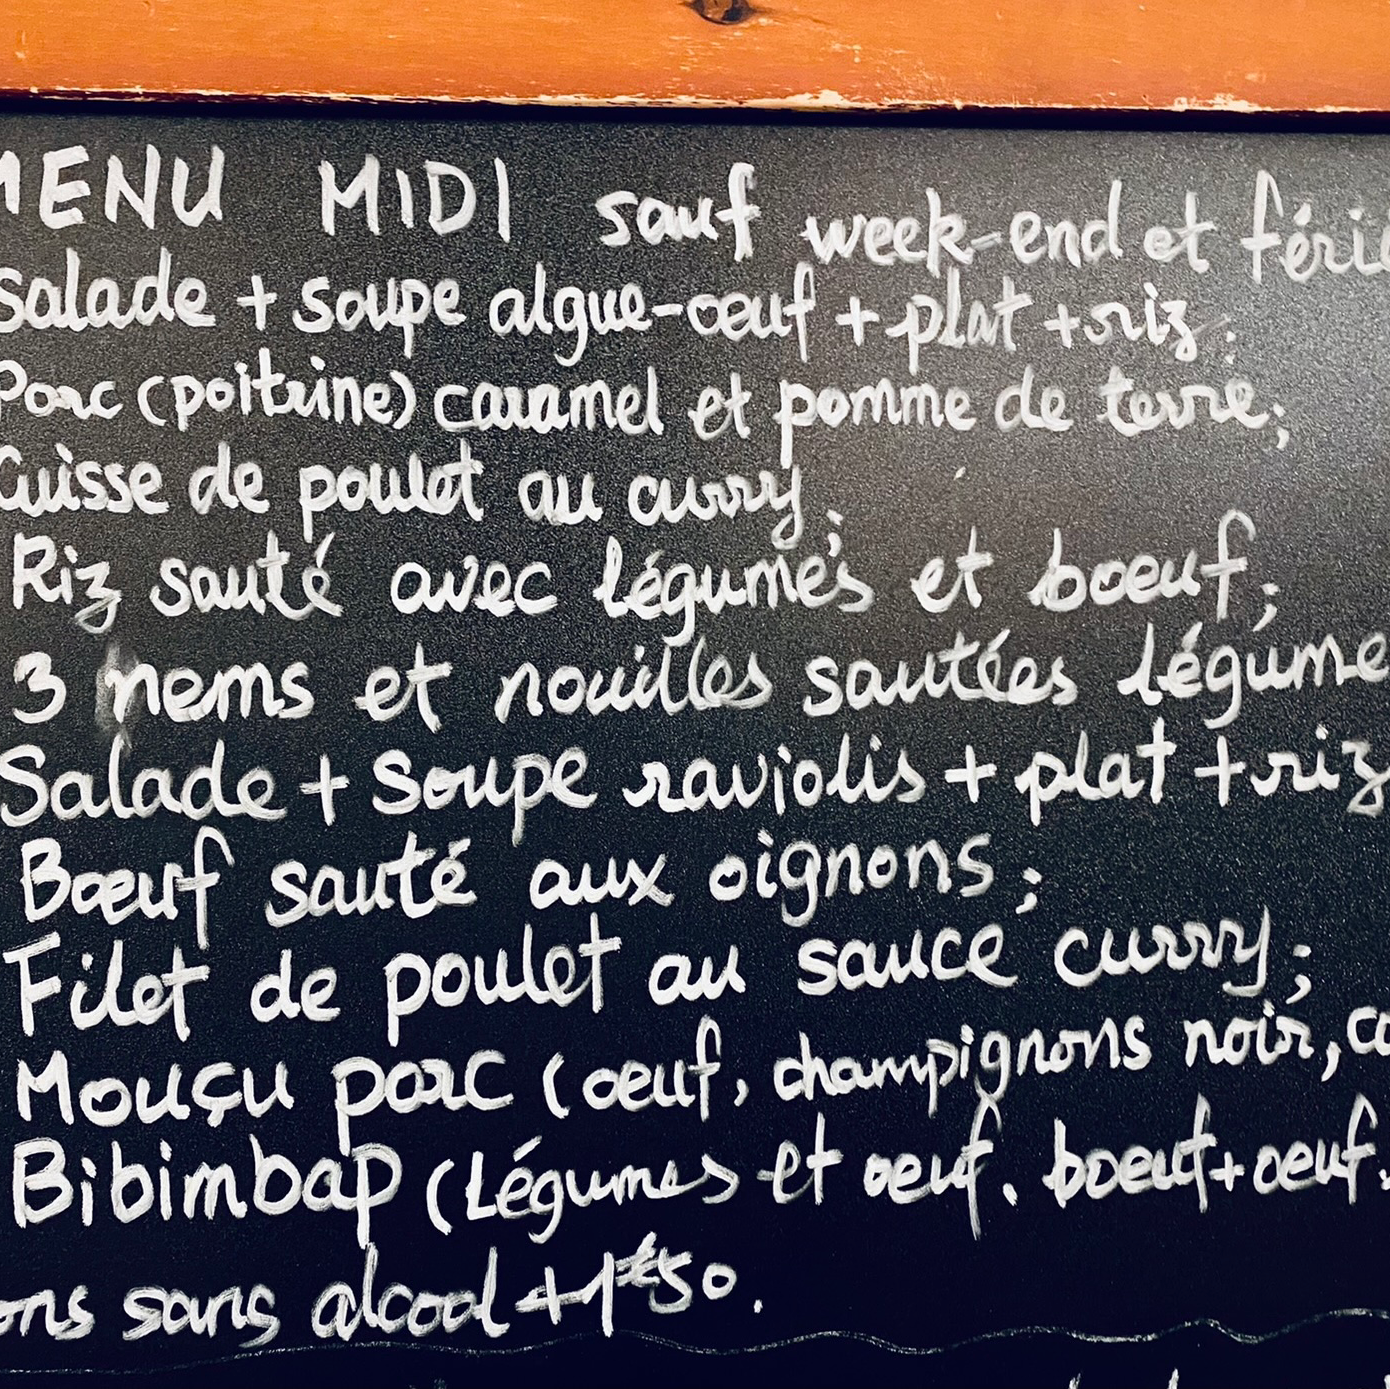 MENU MIDI sauf week-end et férié
Salade + soupe algue-œuf + plat + riz :
Porc (poitrine) caramel et pomme de terre ;
Cuisse de poulet au curry ;
Riz sauté avec légumes et boeuf ;
3 nems et nouilles sautées légume
Salade + soupe raviolis + plat + riz
Bœuf sauté aux oignons ;
Filet de poulet au sauce curry ;
Mouçu porc (oeuf, champignons noir, ca
Bibimbap (Légumes et oeuf. boeuf + oeuf.
ons sans alcool +1€50.